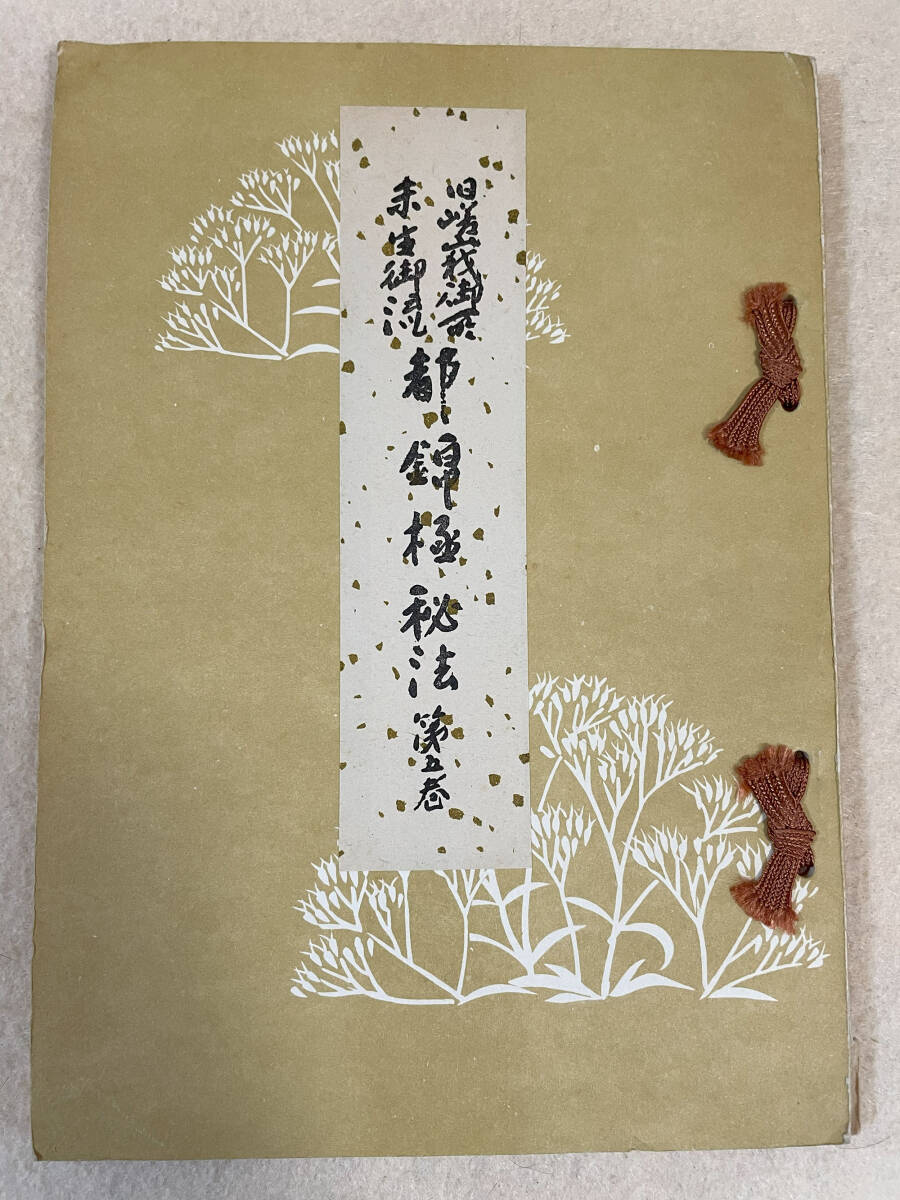 旧嵯峨御所
未生御流
都錦極秘法 第五巻